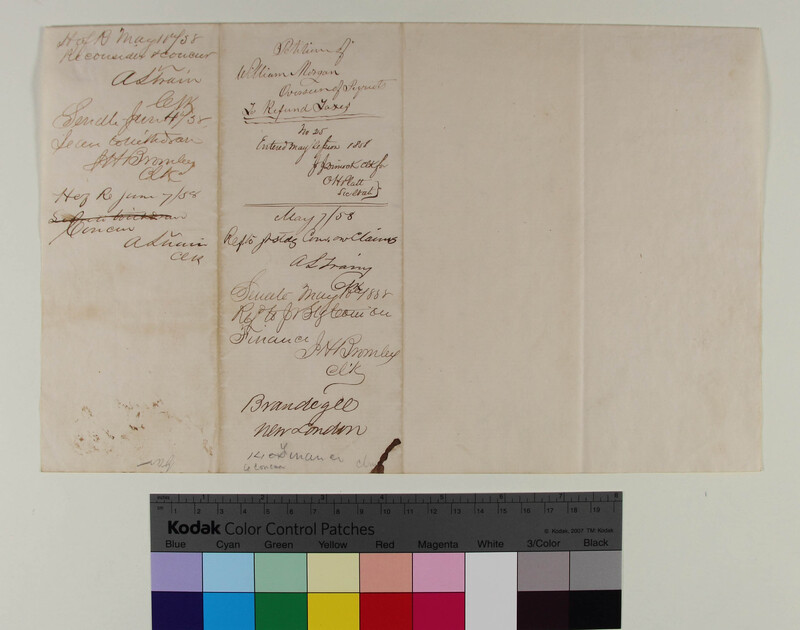 H of R May 18th/58
Reconsider & Concur
A S Train
Clk
Senate June 4th/58
leave to withdraw
J H Bromley
Clk
H of R June 7/58
Concur
A S Train
Clk
Petition of
William Morgan
Overseer of Pequots
To Refund Taxes
No 25
Entered May Session 1858
J Dimock Clk for
O H Platt
Sec. Stat
May 7/58
Ref to Jt Stdg Com. on Claims
A S Train
Clk
Senate May 18th/1858
Refd to Jt Stg Com on
Finance
J H Bromley
Clk
Brandegee
New London
Finance
to concur
Kodak Color Control Patches
© Kodak, 2007 TM: Kodak
Blue Cyan Green Yellow Red Magenta White 3/Color Black
inches 1 2 3 4 5 6 7 8
cm 1 2 3 4 5 6 7 8 9 10 11 12 13 14 15 16 17 18 19